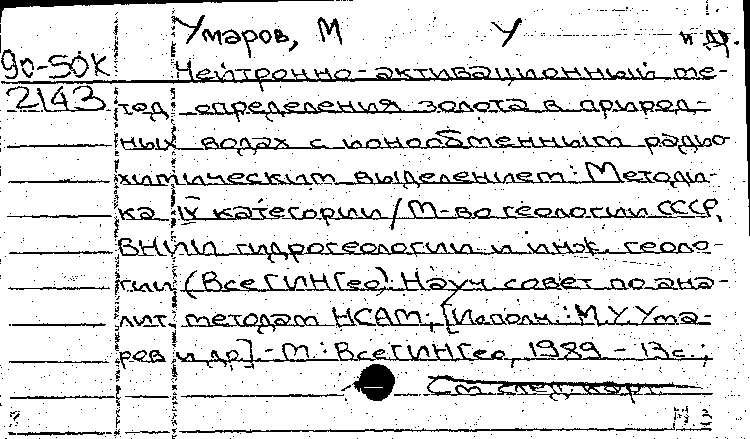 Умаров, М У и др.
90-50К Нейтронно-активационный ме-
2143 тод определения золота в природ-
ных водах с ионообменным радио
химическим выделением: Методи-
ка IV категории / М-во геологии СССР,
ВНИИ гидрогеологии и инж. геоло-
гии (ВСЕГИНГео). Науч совет по ана-
лит. методам НСАМ; [Исполн.: М.У. Ума-
ров и др]. - М.: ВСЕГИНГео, 1989 - 13с.;
См след. карт